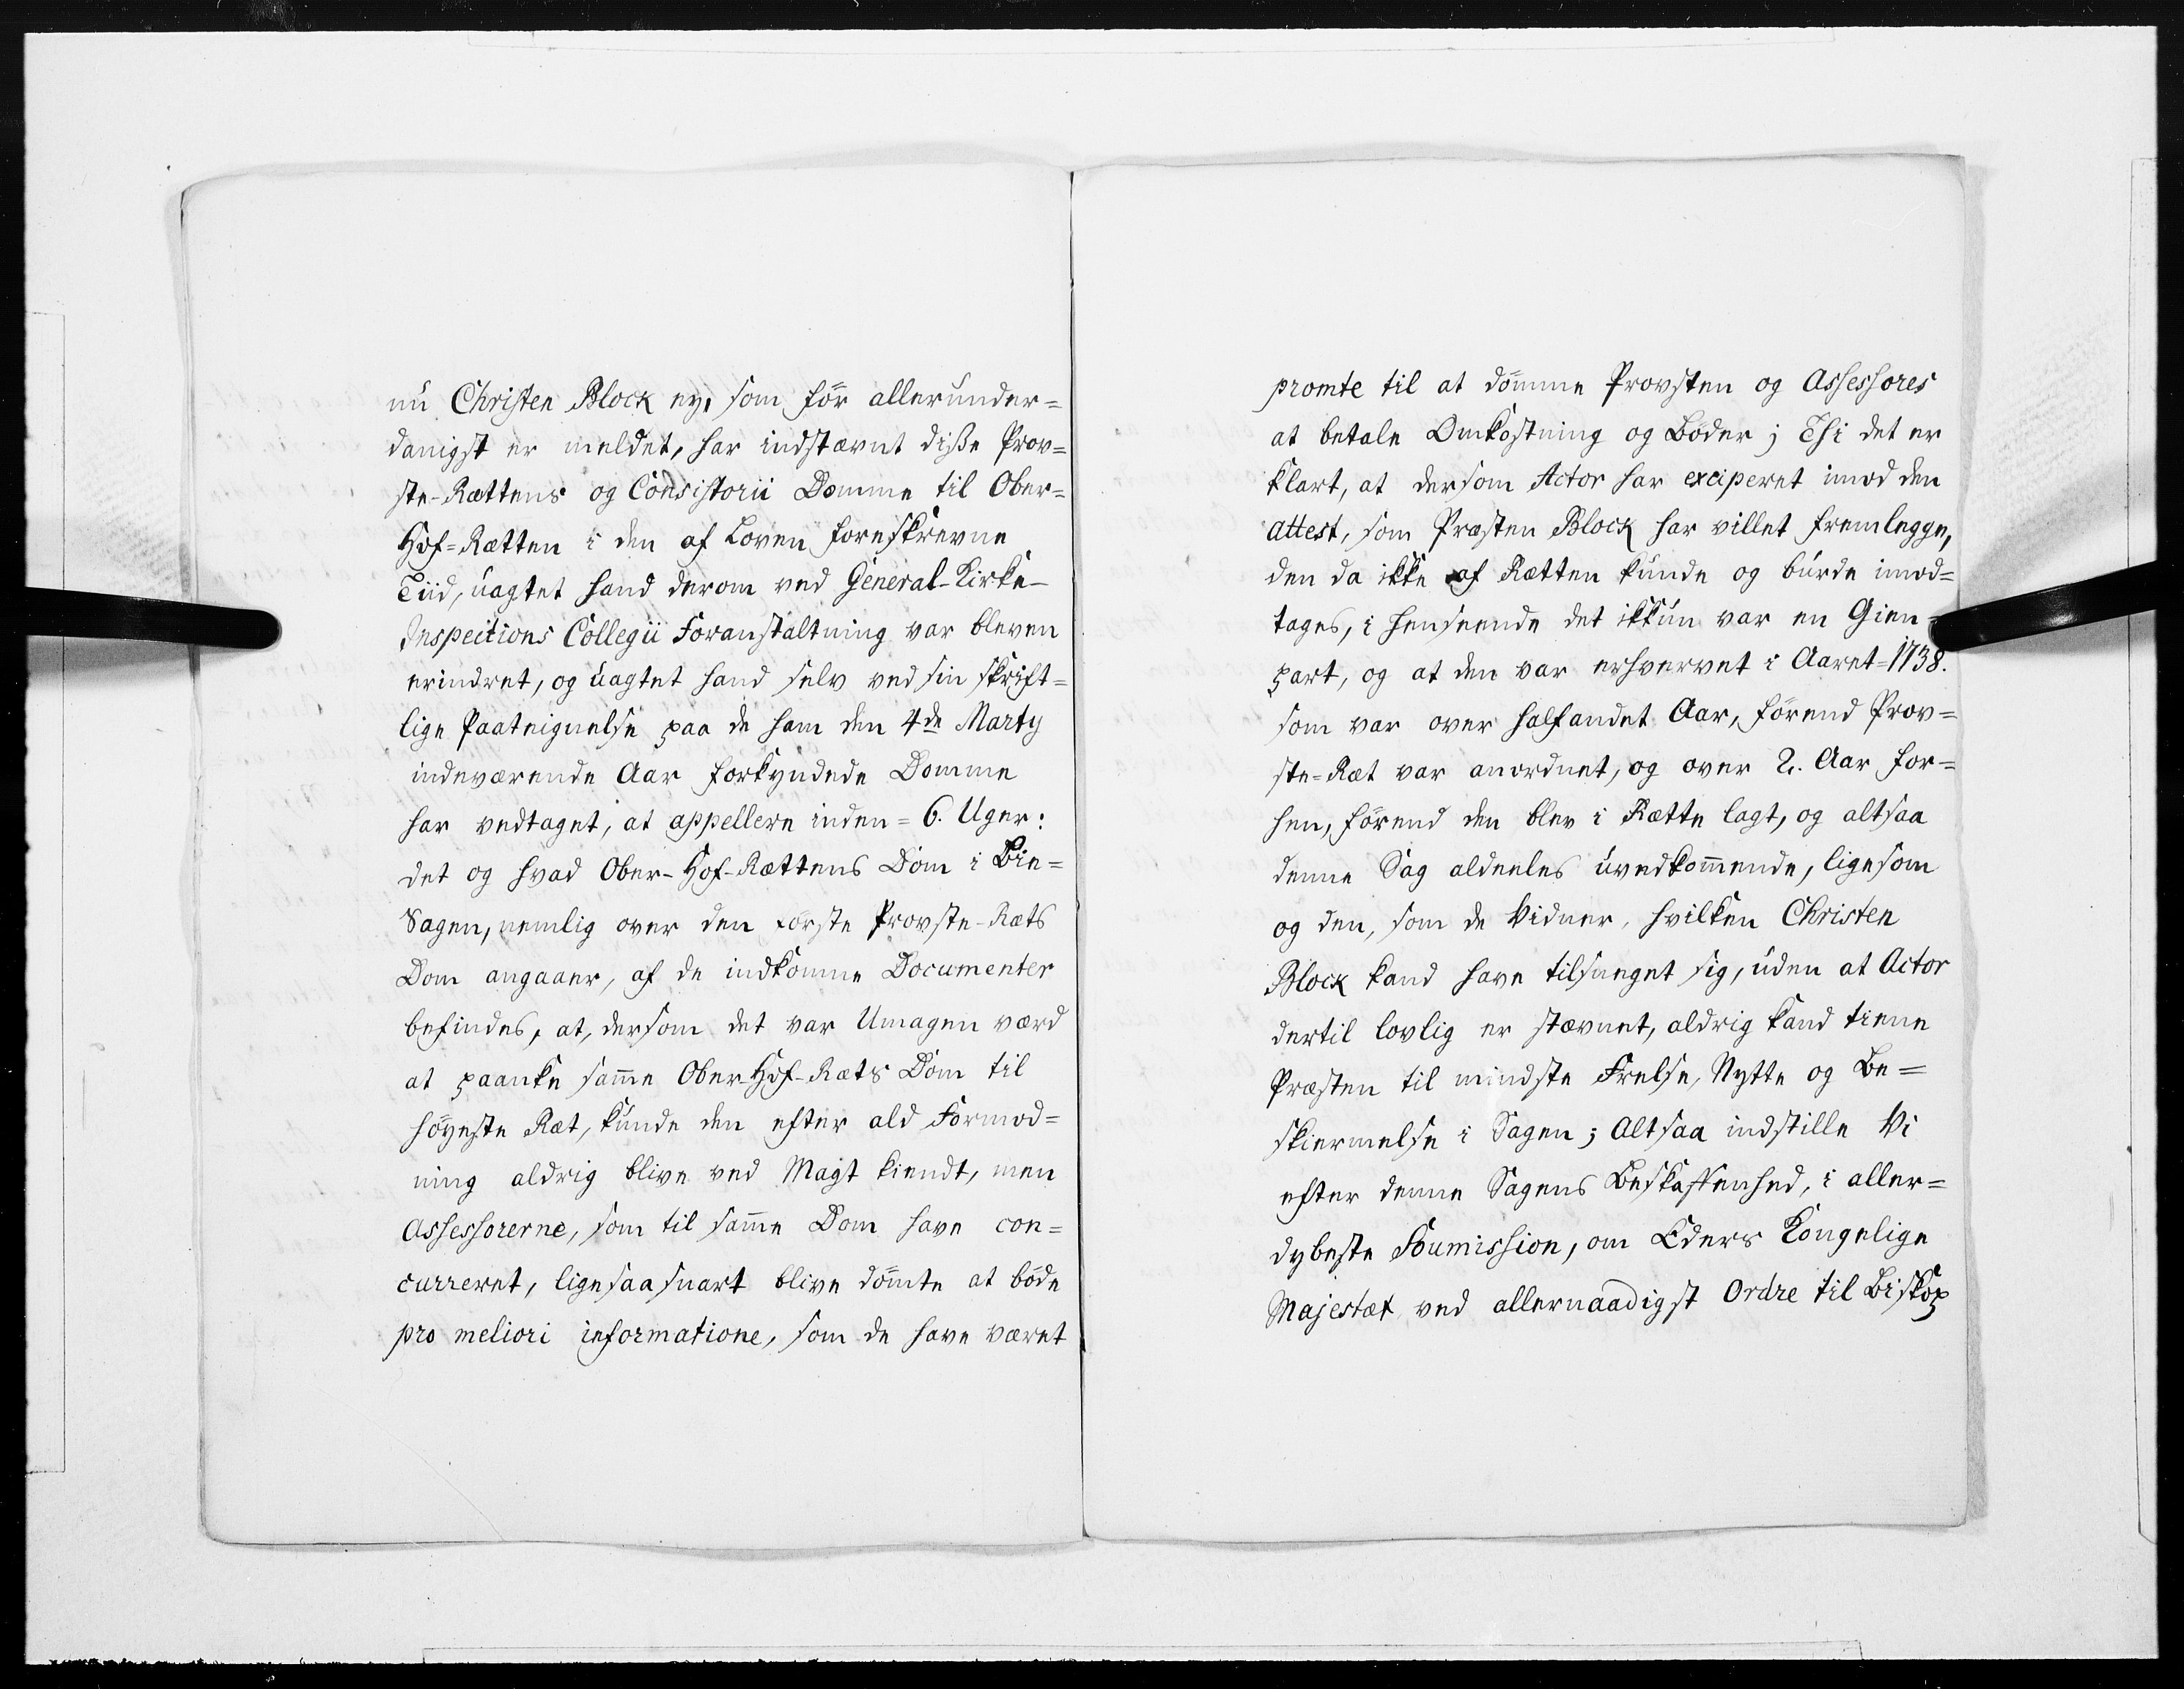 nu Christen Block ey, som för allerunder=
danigst er meldet, har indstævnt disse Prov=
ste-Rættens og Consistorii Domme til Ober=
Hof=Rætten i den af Loven foreskrevne
Tiid, uagtet hand derom ved General-Kirke-
Inspections Collegii Foranstaltning var bleven
erindret, og uagtet hand selv ved sin skrift=
lige Paateignelse paa de ham den 4de Marty
indeværende Aar forkyndede Domme
har vedtaget, at appellere inden= 6. Uger:
det og hvad Ober-Hof-Rættens Dom i Bie=
Sagen, nemlig over den förste Provste-Ræts
Dom angaaer, af de indkomne Documenter
befindes, at, dersom det var Umagen værd
at paanke samme Ober-Hof-Ræts Dom til
höyeste Ræt, kunde den efter ald Formod=
ning aldrig blive ved Magt kiendt, men
Assessorerne, som til samme Dom have con=
curreret, ligesaasnart blive dömte at böde
pro meliori informatione, som de have været
promte til at dömme Provsten og Assessores
at betale Omkostning og Böder; Thi det er
klart, at dersom Actor har exciperet imod den
attest, som Præsten Block har villet fremlegge,
den da ikke af Rætten kunde og burde imod=
tages, i henseende det ikkun var en Gien=
part, og at den var erhvervet i Aaret=1738.
som var over halfandet Aar, förend Prov=
ste=Ræt var anordnet, og over 2. Aar for=
hen, förend den blev i Rætte lagt, og altsaa
denne Sag aldeeles uvedkommende, ligesom
og den, som de Vidner, hvilken Christen
Block kand have tilsneget sig, uden at Actor
dertil lovlig er stævnet, aldrig kand tiene
Præsten til mindste Frelse, Nytte og Be=
skiermelse i Sagen; Altsaa indstille Vi
efter denne Sagens Beskaffenhed, i aller=
dybeste Soumission, om Eders Kongelige
Majestæt ved allernaadigst Ordre til Biskop